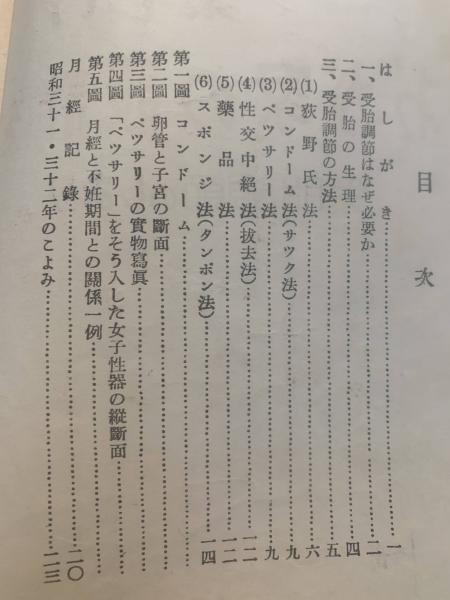 目次
はしがき……一
一、受胎調節はなぜ必要か……二
二、受胎の生理……四
三、受胎調節の方法……五
(1) 荻野氏法……六
(2) コンドーム法(サツク法)……九
(3) ペツサリー法……九
(4) 性交中絶法(拔去法)……一二
(5) 藥品法……一二
(6) スポンジ法(タンポン法)……一四
第一圖 コンドーム
第二圖 卵管と子宮の斷面
第三圖 ペツサリーの實物寫眞
第四圖 「ペツサリー」をそう入した女子性器の縱斷面
第五圖 月經と不姙期間との關係一例
月經記錄……二〇
昭和三十一・三十二年のこよみ……二三